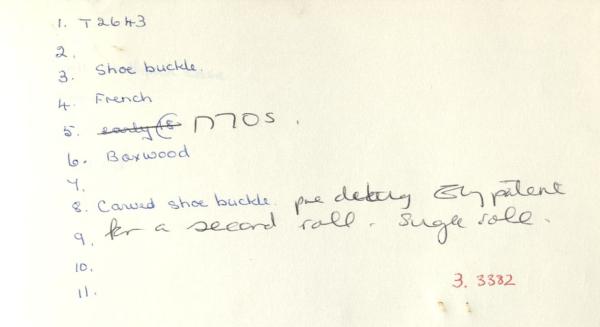 1. T2643
2.
3. Shoe buckle.
4. French
5. early C18 1770s.
6. Boxwood
7.
8. Carved shoe buckle. pre dating patent
9. for a second roll.
10.
11.
3. 3382